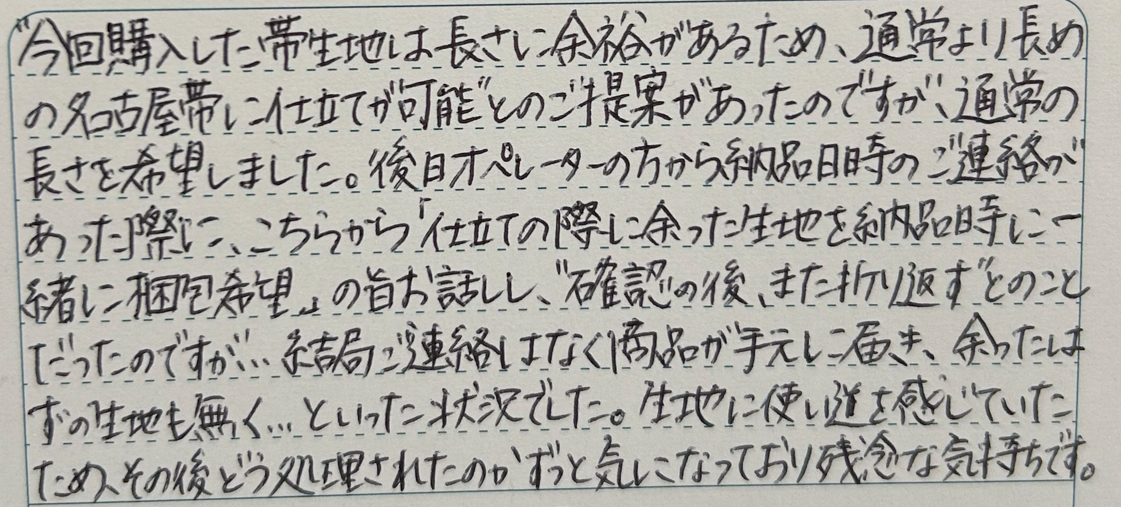 “今回購入した帯生地は長さに余裕があるため、通常より長め
の名古屋帯に仕立てが可能”とのご提案があったのですが、通常の
長さを希望しました。後日オペレーターの方から納品日時のご連絡が
あった際に、こちらから「仕立ての際に余った生地を納品時に一
緒に梱包希望」の旨お話しし、“確認の後、また折り返す”とのこと
だったのですが…結局ご連絡はなく商品が手元に届き、余ったは
ずの生地も無く…といった状況でした。生地に使い道を感じていた
ため、その後どう処理されたのかずっと気になっており残念な気持ちです。